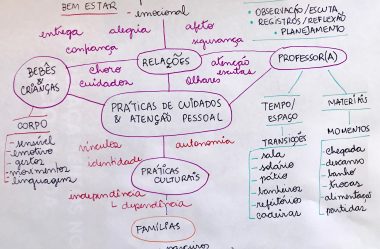 BEM ESTAR
emocional
entrega
alegria
afeto
confiança
segurança
• OBSERVAÇÃO/ESCUTA
• REGISTROS/REFLEXÃO
• PLANEJAMENTO
RELAÇÕES
PROFESSOR(A)
BEBÊS
& CRIANÇAS
choro
cuidados
atenção
escutas
olhares
PRÁTICAS DE CUIDADOS
& ATENÇÃO PESSOAL
CORPO
- sensível
- emotivo
- gestos
- movimentos
- linguagens
vínculos
identidade
autonomia
PRÁTICAS
CULTURAIS
independência
dependência
FAMÍLIAS
TEMPO/
ESPAÇO
TRANSIÇÕES
- sala
- solário
- pátio
- banheiros
- refeitórios
- cadeiras
MATERIAIS
MOMENTOS
- chegada
- descanso
- banho
- trocas
- alimentação
- partidas